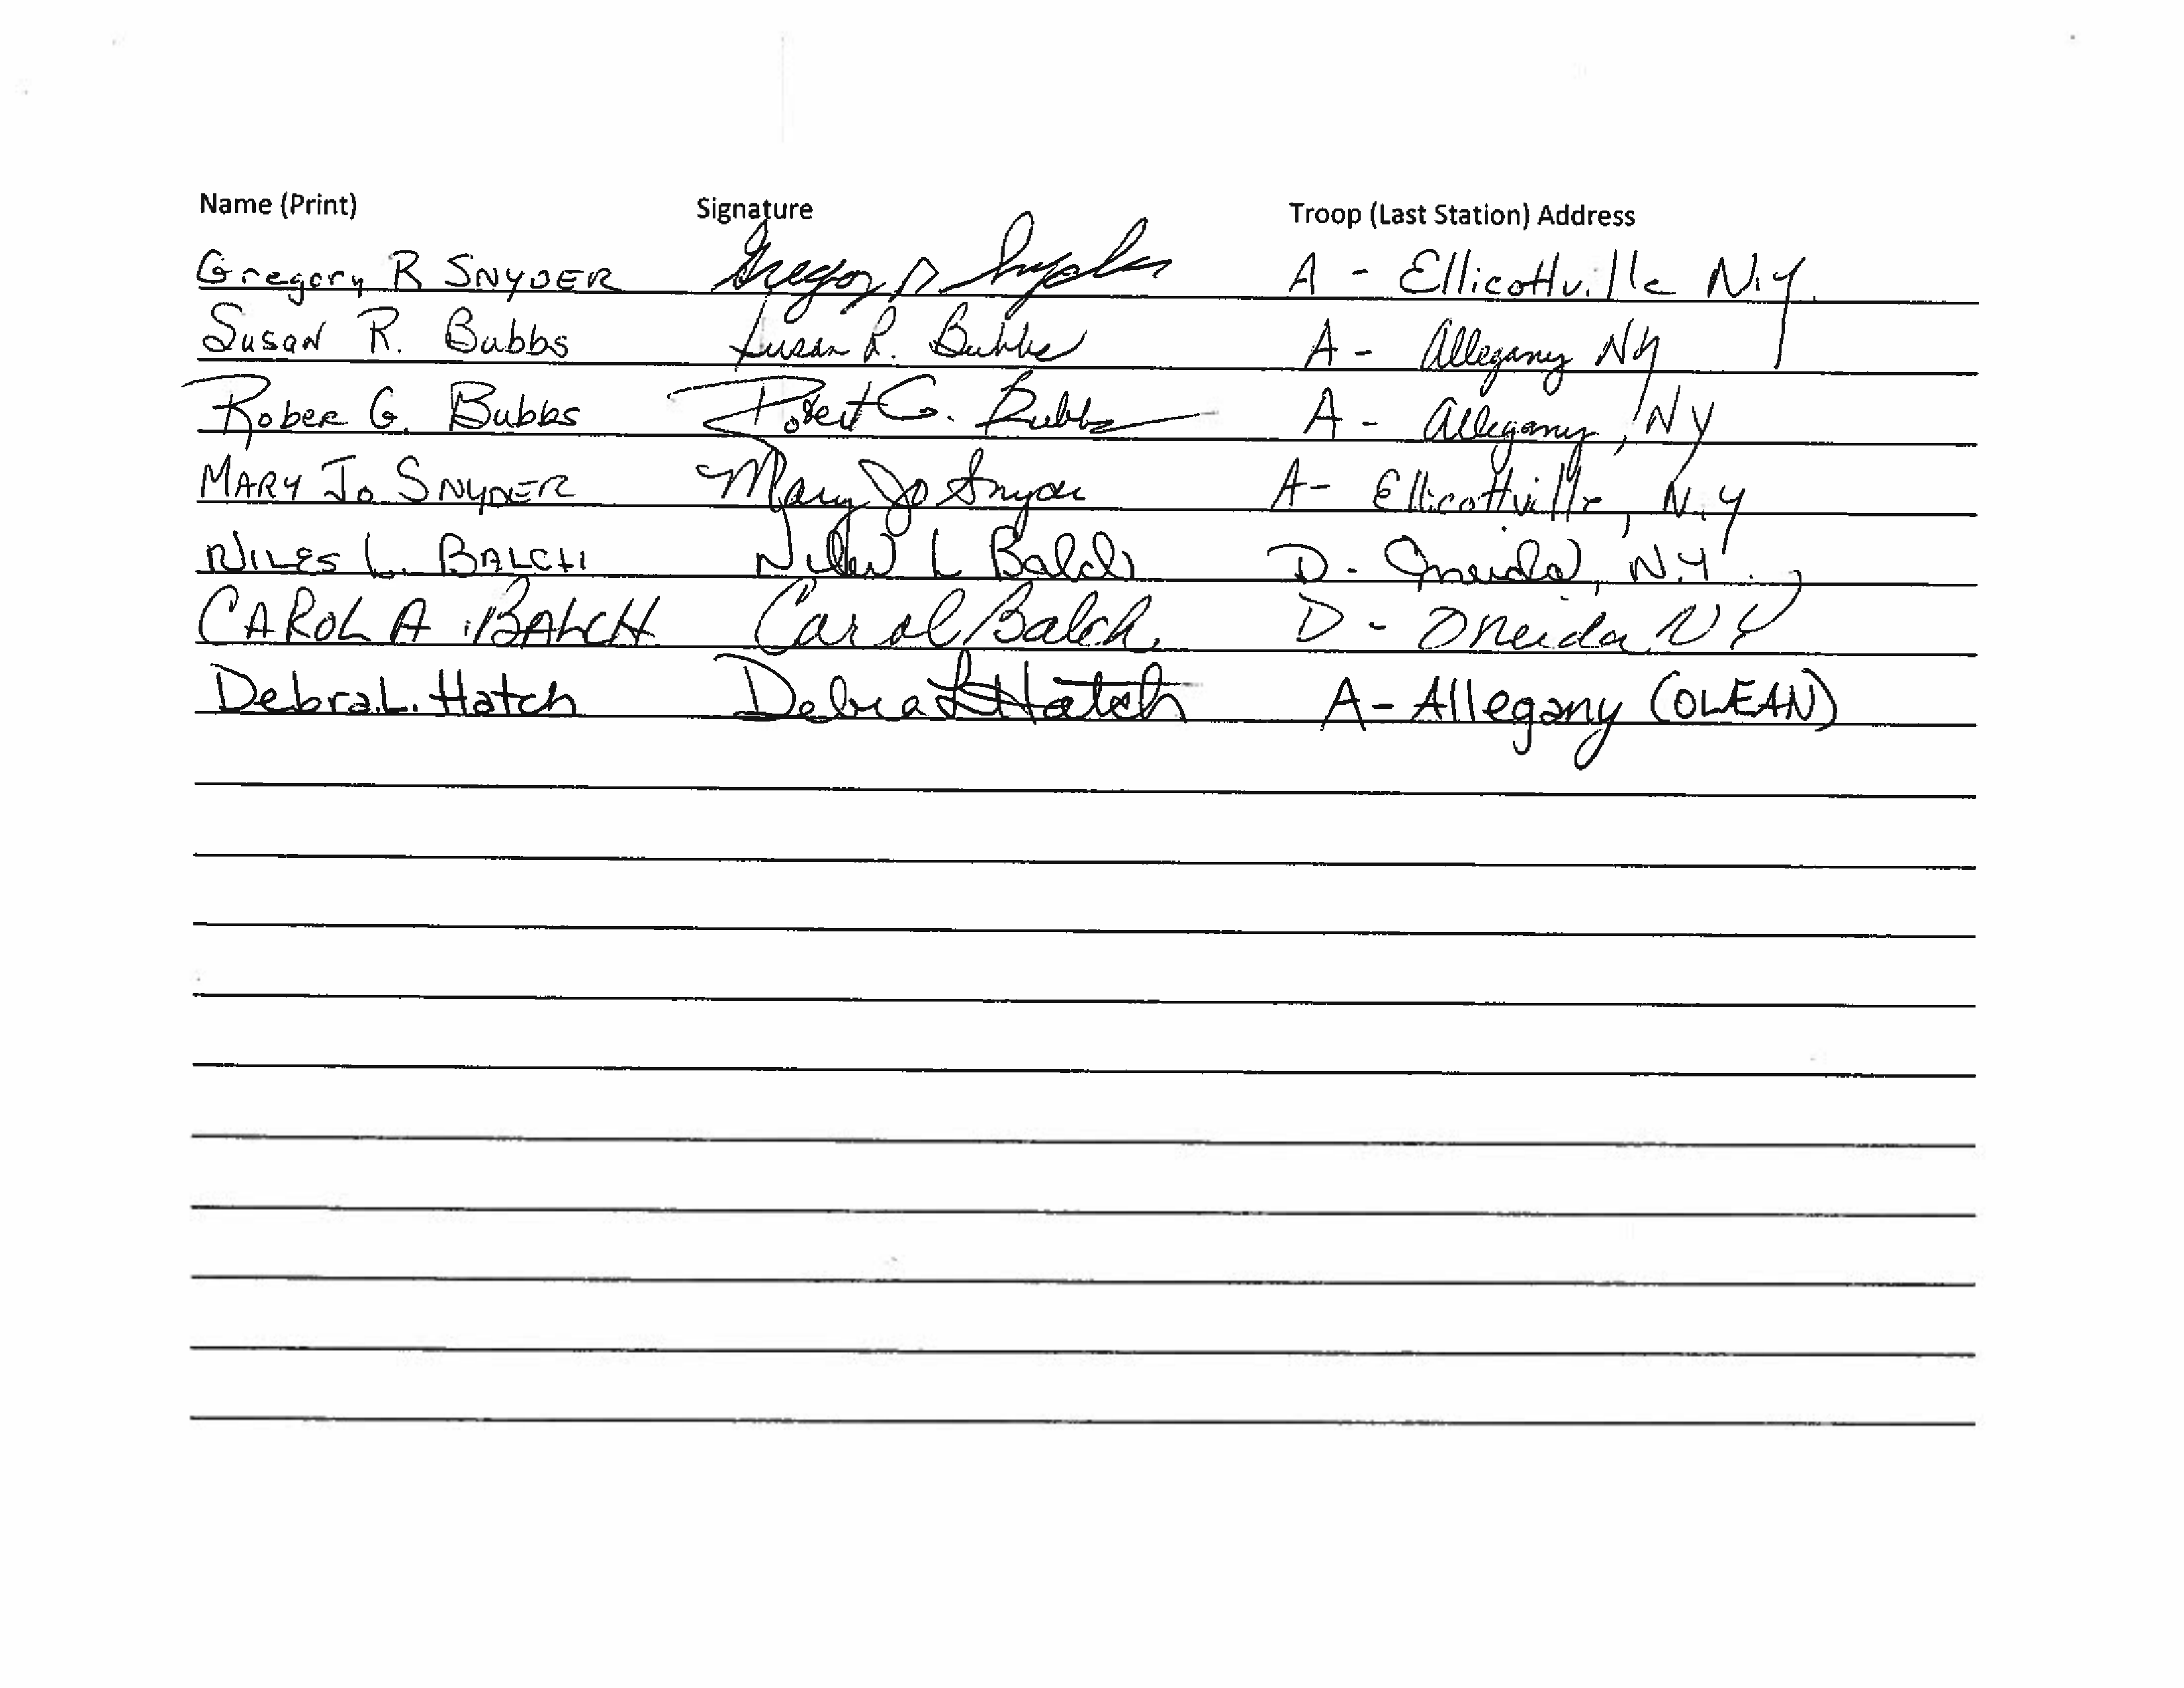 Name (Print) Signature Troop (Last Station) Address
Gregory R SNYDER Gregory R Snyder A - Ellicottville N.Y.
Susan R. Bubbs Susan R. Bubbs A - Allegany NY
Rober G. Bubbs Robert G. Bubbs A - Allegany, NY
MARY Jo SNYDER Mary Jo Snyder A- Ellicottville, N.Y
NILES L. BALCH Niles L Balch D. Oneida, N.Y.
CAROL A. BALCH Carol Balch D - Oneida NY
Debra.L. Hatch Debra L Hatch A- Allegany (OLEAN)